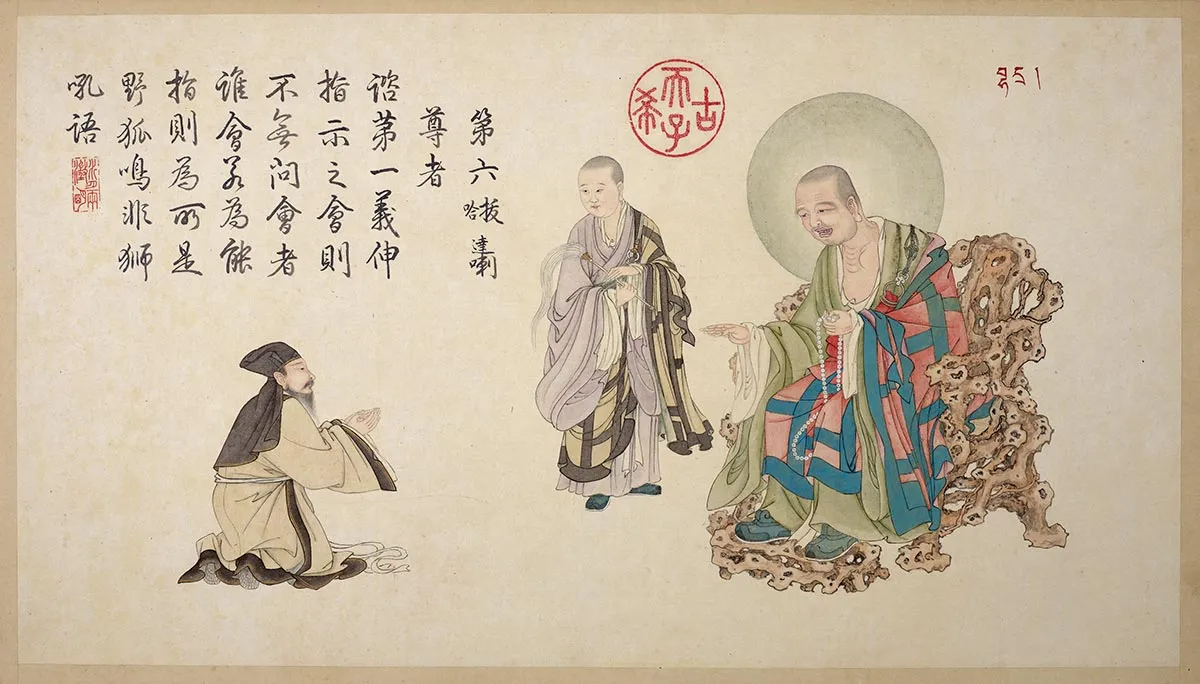 古希天子
第六拔哈達喇
尊者
諮第一義伸
指示之會則
不無問會者
誰會若為能
指則為所是
野狐鳴非獅
吼語
水月兩澄明